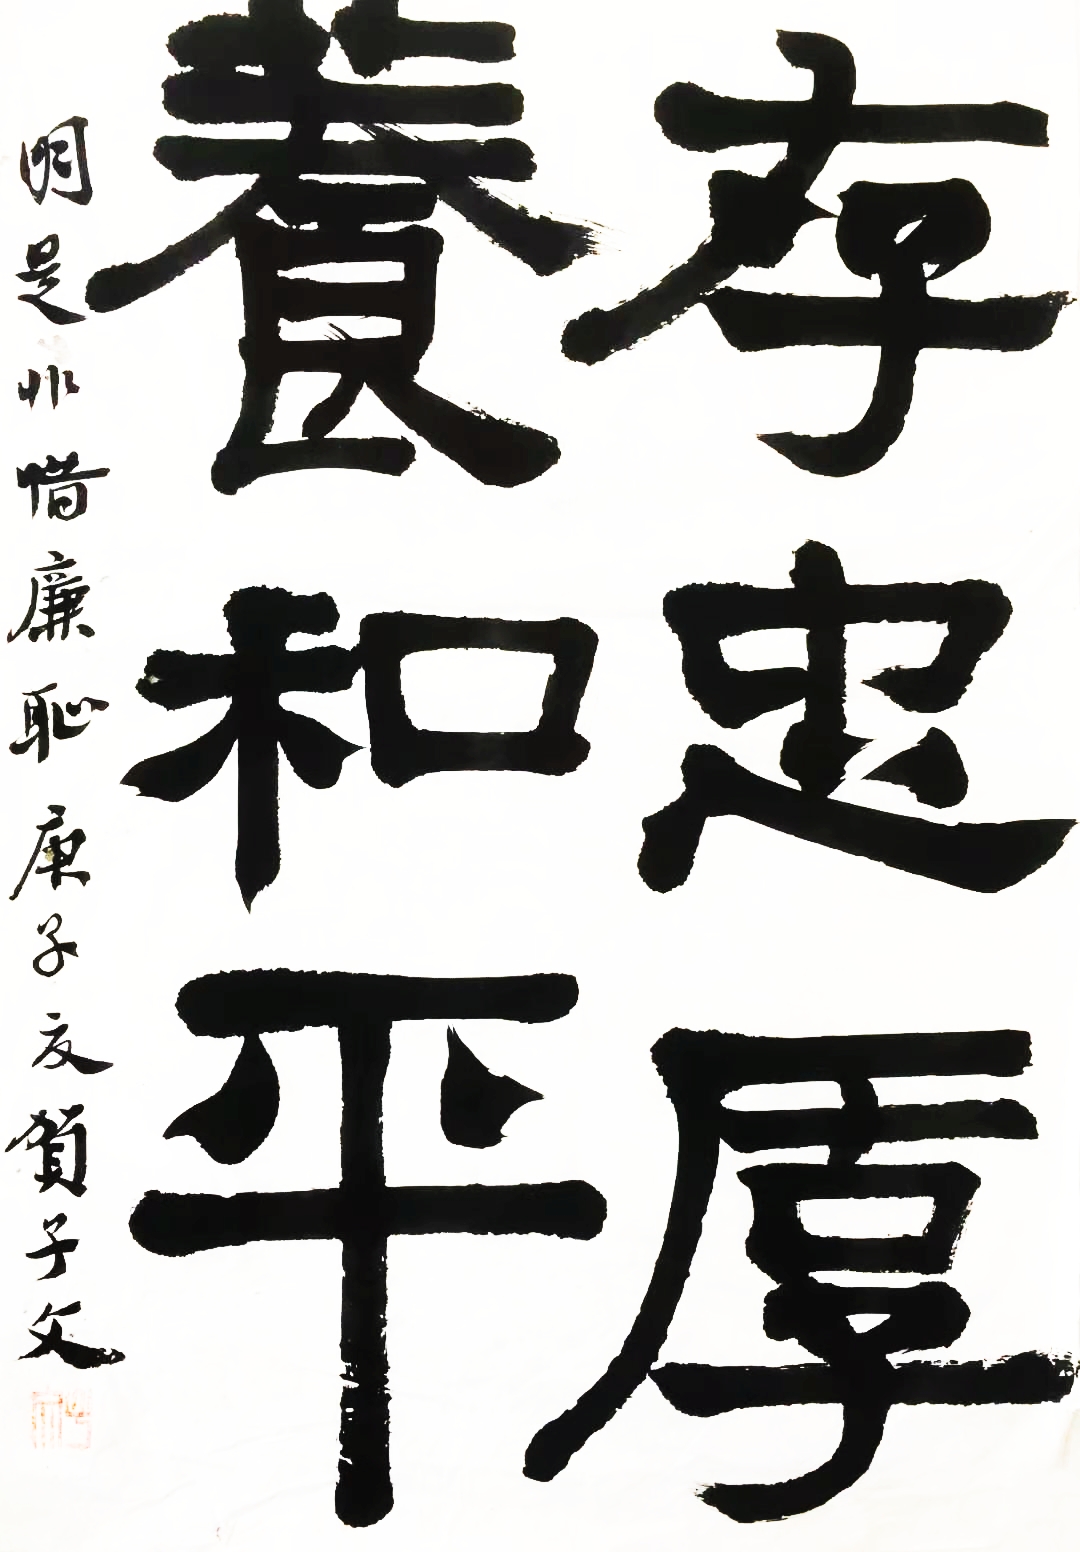 存忠厚
養和平
明是非惜廉恥庚子夏賀子文